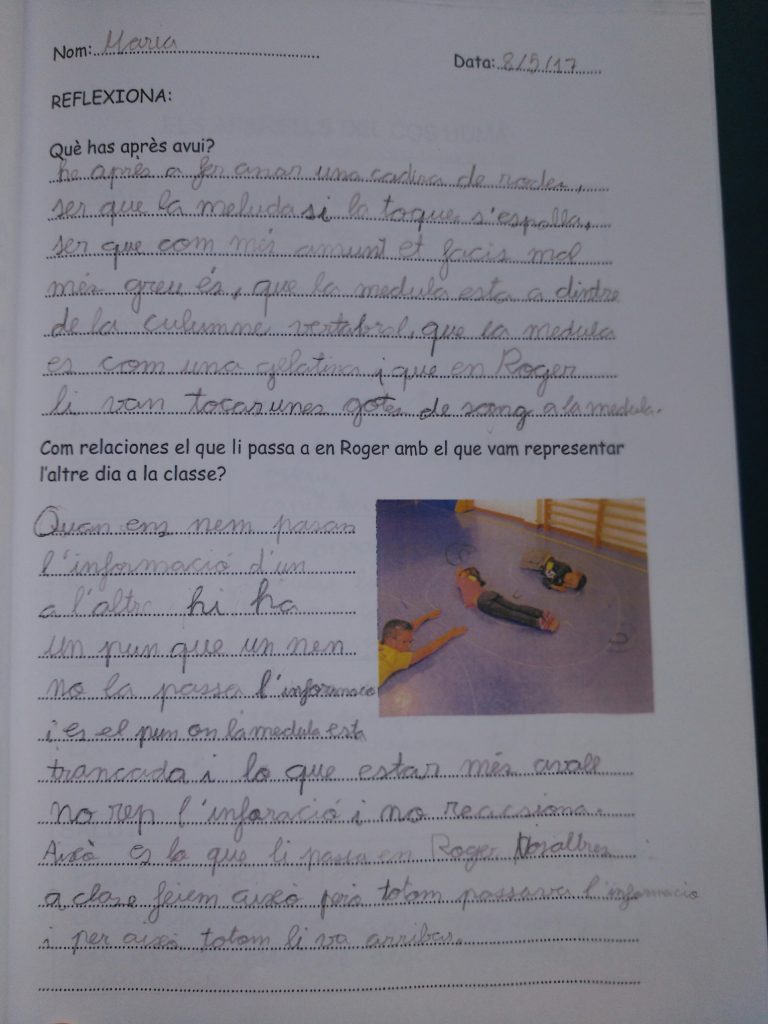 Nom: Maria
Data: 8/5/17
REFLEXIONA:
Què has après avui?
he après a fer anar una cadira de rodes,
ser que la meluda si la toques s'espalla,
ser que com més amunt et facis mal
més greu és, que la medula esta a dintre
de la culumne vertabral, que la medula
es com una gelatina i que en Roger
li van tocar unes gotes de sang a la medula.
Com relaciones el que li passa a en Roger amb el que vam representar
l'altre dia a la classe?
Quan ens nem pasan
l'informació d'un
a l'altre hi ha
un pun que un nen
no la passa l'informacio
i es el pun on la medula esta
trancada i lo que estar més avall
no rep l'inforació i no reacsiona.
Això es lo que li passa en Roger Nosaltres
a clase feiem això però totom passava l'informacio
i per això totom li va arribar.